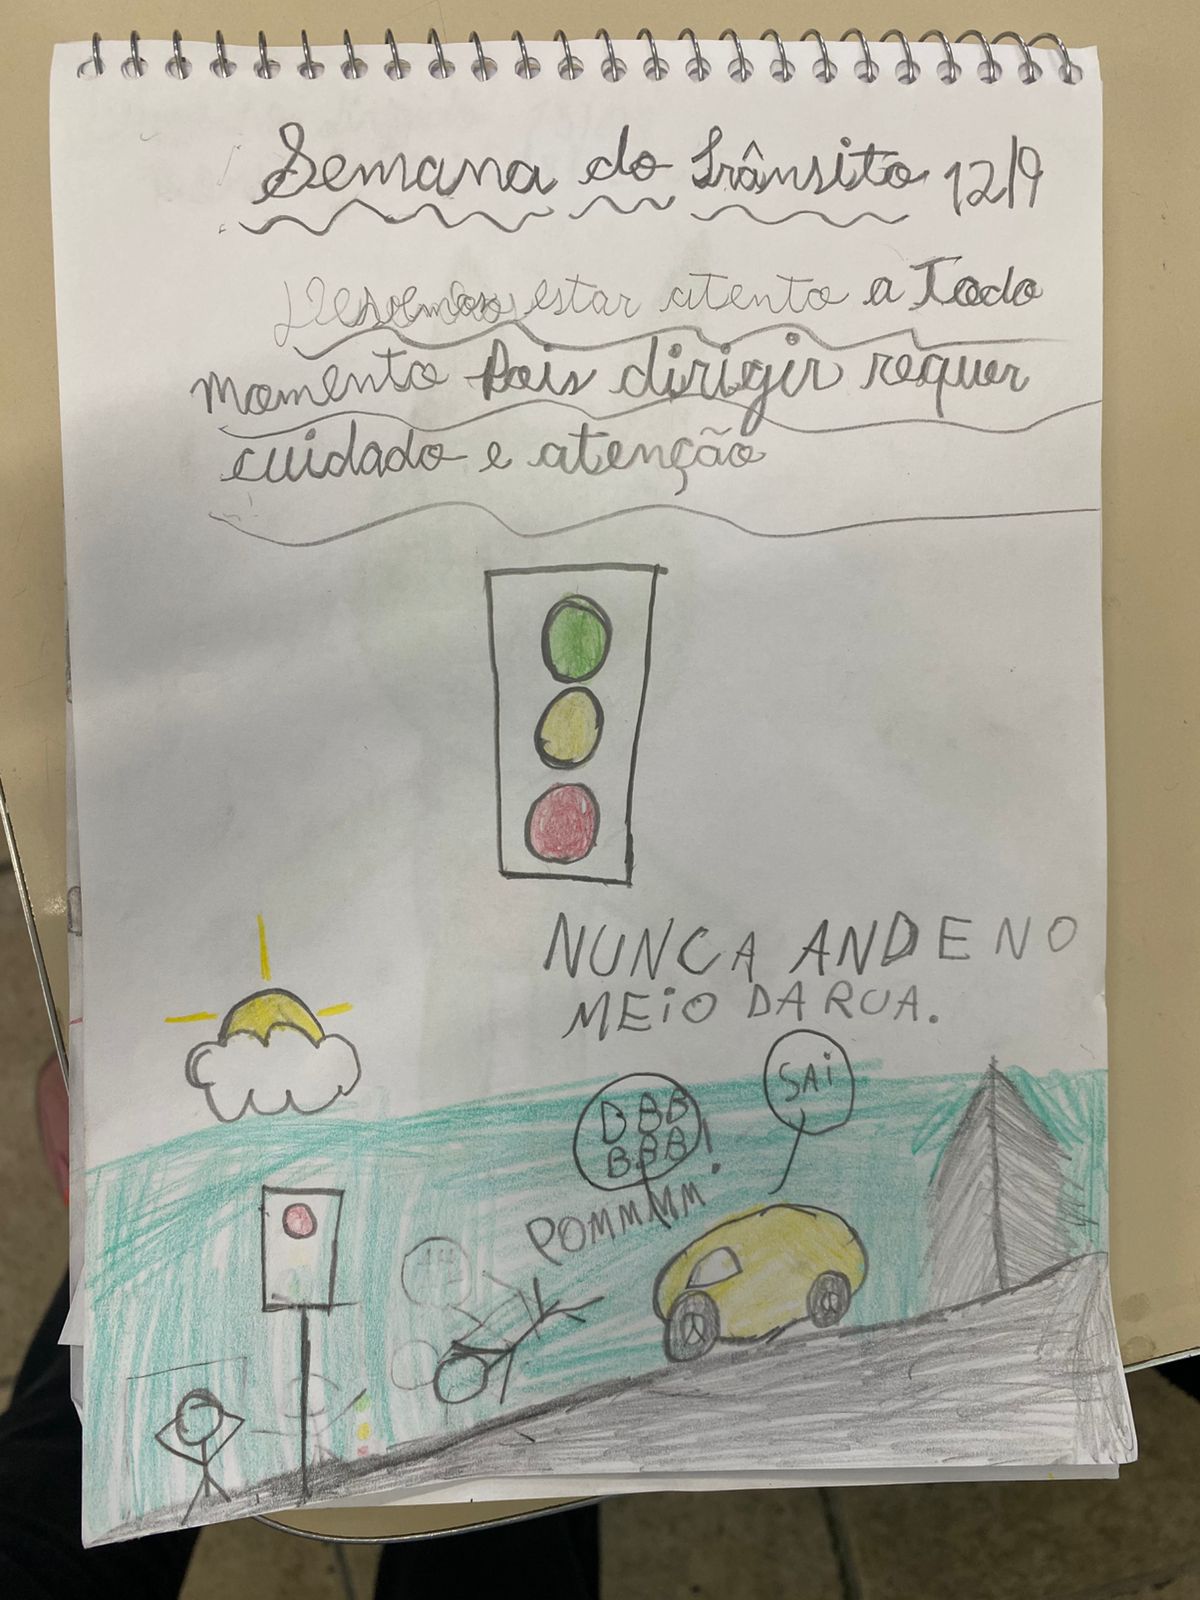 Semana do Trânsito 12/9
Devemos estar atento a Todo
momento Pois dirigir requer
cuidado e atenção
NUNCA ANDE NO
MEiO DA RUA.
SAi
BBB
BBB!
POMMMM